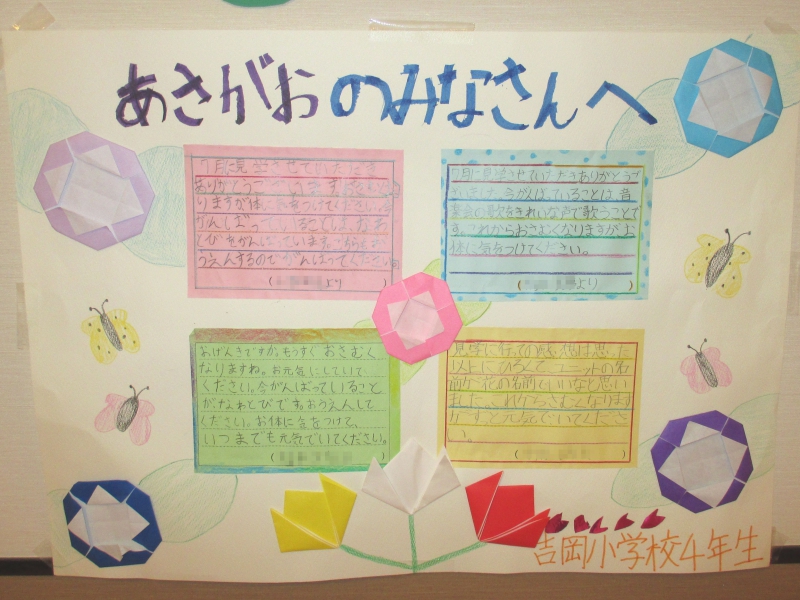 あさがおのみなさんへ
7月に見学させていただき
ありがとうございます。
りますが体に気をつけてください。
がんばっていることは、なわ
とびをがんばっています。こちらもお
うえんするのでがんばってください。
(より)
7月に見学させていただきありがとうご
ざいました。今がんばっていることは音
楽会の歌をきれいな声で歌うことで
す。これからおさむくなりますがお
体に気をつけてください。
(より)
おげんきですか。もうすぐおさむく
なりますね。お元気にしていて
ください。今がんばっていること
がなわとびです。おうえんして
ください。お体に気をつけて、
いつまでも元気でいてください。
(
)
見学に行っての感想は思った
以上にひろくて、ユニットの名
前が花の名前でいいなと思い
ました。これからさむくなります
がずっと元気でいてくださ
い。
(
)
吉岡小学校4年生